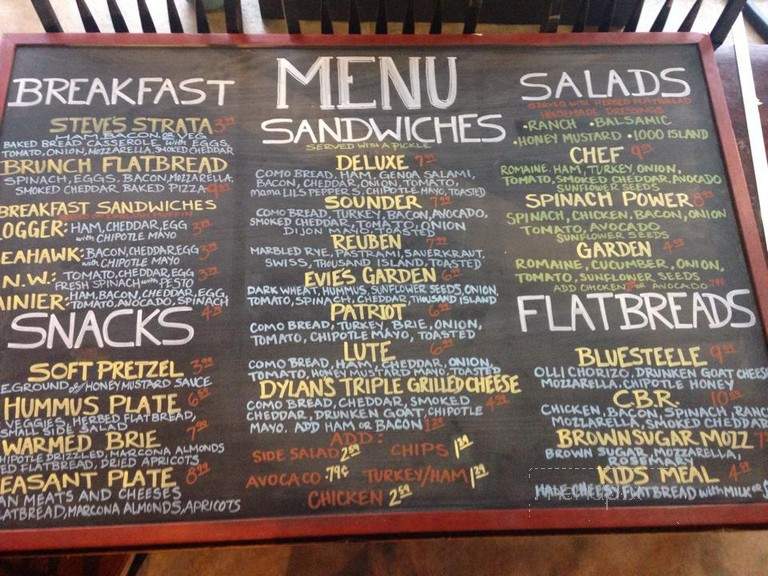 BREAKFAST
STEVE'S STRATA
HAM, BACON, OR VEG
BAKED BREAD CASSEROLE with EGGS,
TOMATO, ONION, MOZZARELLA, SMOKED CHEDDAR
BRUNCH FLATBREAD
SPINACH, EGGS, BACON, MOZZARELLA,
SMOKED CHEDDAR BAKED PIZZA
BREAKFAST SANDWICHES
OGGER: HAM, CHEDDAR, EGG
with CHIPOTLE MAYO
EAHAWK: BACON, CHEDDAR, EGG
with CHIPOTLE MAYO
N.W.: TOMATO, CHEDDAR, EGG
FRESH SPINACH with PESTO
AINIER: HAM, BACON, CHEDDAR, EGG,
TOMATO, AVOCADO, SPINACH
SNACKS
SOFT PRETZEL
EGROUND or HONEY MUSTARD SAUCE
HUMMUS PLATE
VEGGIES, HERBED FLATBREAD,
SMALL SIDE SALAD
WARMED BRIE
HIPOTLE DRIZZLED, MARCONA ALMONDS
ED FLATBREAD, DRIED APRICOTS
EASANT PLATE
AN MEATS AND CHEESES
LATBREAD, MARCONA ALMONDS, APRICOTS
MENU
SANDWICHES
SERVED WITH A PICKLE
DELUXE
COMO BREAD, HAM, GENOA SALAMI,
BACON, CHEDDAR, ONION, TOMATO,
MAMA LILS PEPPERS, CHIPOTLE MAYO, TOASTED
SOUNDER
COMO BREAD, TURKEY, BACON, AVOCADO,
SMOKED CHEDDAR, TOMATO, ONION
DIJON MAYO, TOASTED
REUBEN
MARBLED RYE, PASTRAMI, SAUERKRAUT,
SWISS, THOUSAND ISLAND, TOASTED
EVIE'S GARDEN
DARK WHEAT, HUMUS, SUNFLOWER SEEDS, ONION,
TOMATO, SPINACH, CHEDDAR, THOUSAND ISLAND
PATRIOT
COMO BREAD, TURKEY, BRIE, ONION,
TOMATO, CHIPOTLE MAYO, TOASTED
LUTE
COMO BREAD, HAM, CHEDDAR, ONION,
TOMATO, HONEY MUSTARD MAYO, TOASTED
DYLAN'S TRIPLE GRILLED CHEESE
COMO BREAD, CHEDDAR, SMOKED
CHEDDAR, DRUNKEN GOAT, CHIPOTLE
MAYO. ADD HAM OR BACON
ADD:
SIDE SALAD CHIPS
AVOCADO .79¢ TURKEY/HAM
CHICKEN
SALADS
SERVED WITH HERBED FLATBREAD
HOMEMADE DRESSINGS
•RANCH •BALSAMIC
•HONEY MUSTARD •1000 ISLAND
CHEF
ROMAINE, HAM, TURKEY, ONION,
TOMATO, SMOKED CHEDDAR, AVOCADO
SUNFLOWER SEEDS
SPINACH POWER
SPINACH, CHICKEN, BACON, ONION
TOMATO, AVOCADO
SUNFLOWER SEEDS
GARDEN
ROMAINE, CUCUMBER, ONION,
TOMATO, SUNFLOWER SEEDS
ADD CHICKEN OR AVOCADO
FLATBREADS
BLUESTEELE
OLLI CHORIZO, DRUNKEN GOAT CHEESE
MOZZARELLA, CHIPOTLE HONEY
C.B.R.
CHICKEN, BACON, SPINACH, RANC
MOZZARELLA, SMOKED CHEDDAR
BROWN SUGAR MOZZ
BROWN SUGAR, MOZZARELLA,
ROSEMARY
KIDS MEAL
MADE CHEESY FLATBREAD with MILK or